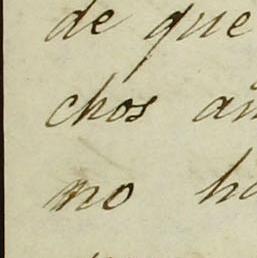 de que
chos añ
no ha